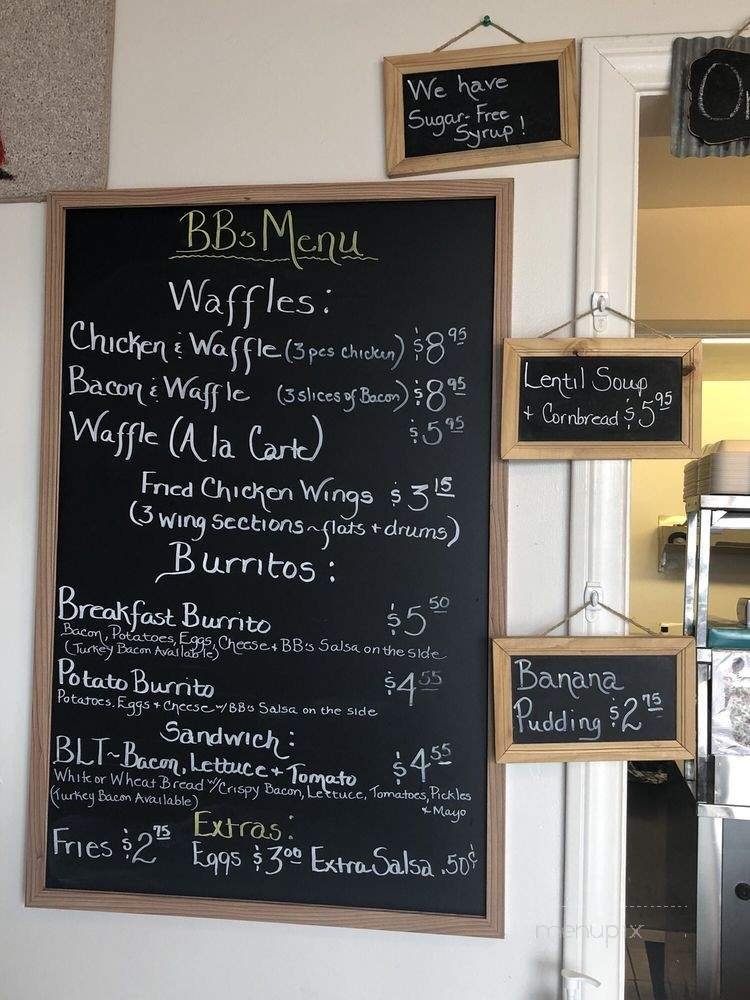 We have
Sugar-Free
Syrup!
BB's Menu
Waffles:
Chicken & Waffle (3 pcs chicken) $8.95
Bacon & Waffle (3 slices of Bacon) $8.95
Waffle (A la Carte) $5.95
Fried Chicken Wings $3.15
(3 wing sections ~ flats + drums)
Burritos:
Breakfast Burrito $5.50
Bacon, Potatoes, Eggs, Cheese + BB's Salsa on the side
(Turkey Bacon Available)
Potato Burrito $4.55
Potatoes, Eggs + Cheese w/ BB's Salsa on the side
Sandwich:
BLT ~ Bacon, Lettuce + Tomato $4.55
White or Wheat Bread w/ Crispy Bacon, Lettuce, Tomatoes, Pickles
& Mayo
(Turkey Bacon Available)
Extras:
Fries $2.75 Eggs $3.00 Extra Salsa .50¢
Lentil Soup
+ Cornbread $5.95
Banana
Pudding $2.75
menupix